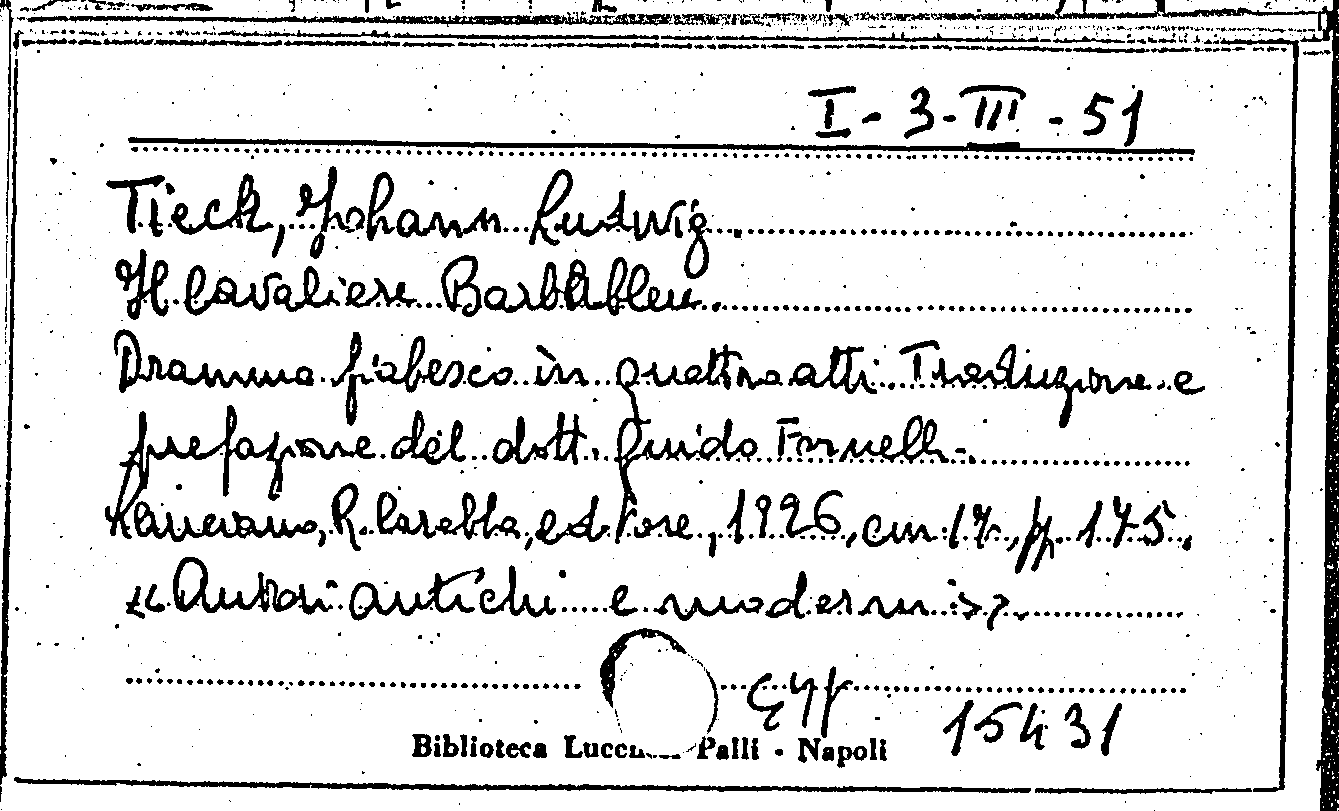 I - 3 - III - 51
Tieck, Johann Ludwig.
Il Cavaliere Barbableu.
Dramma fiabesco in quattro atti. Traduzione e
prefazione del dott. Guido
Lanciano, R. Carabba, editore, 1926, cm. 17, pp. 175.
«Autori antichi e moderni».
15431
Biblioteca Palli - Napoli